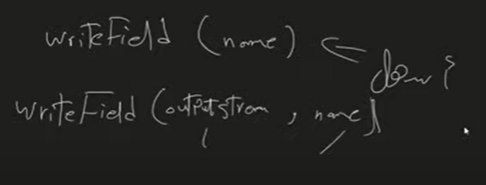 writeField (name) ←
writeField (outputstream , name)